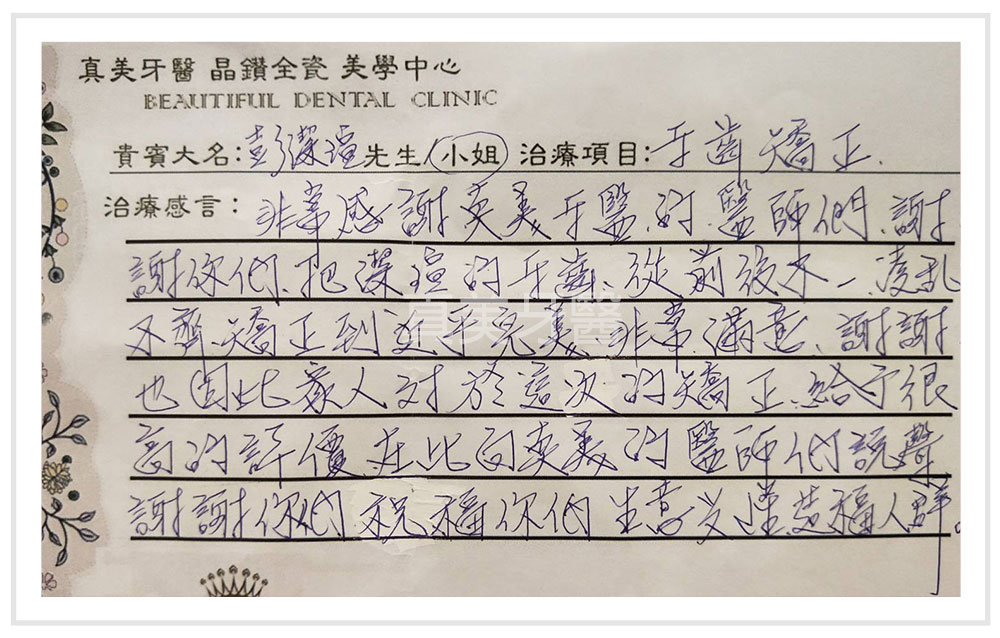 真美牙醫 晶鑽全瓷 美學中心
BEAUTIFUL DENTAL CLINIC
貴賓大名:彭潔瑄先生/小姐 治療項目:牙齒矯正.
治療感言: 非常感謝真美牙醫的醫師們.謝
謝你們.把潔瑄的牙齒.從前後不一.凌乱
不齊.矯正到近乎完美.非常滿意.謝謝
也因比家人对於這次的矯正.給予很
高的評價在此向真美的醫師們說聲
謝謝你們祝福你們生意兴隆造福人群。
真美牙醫